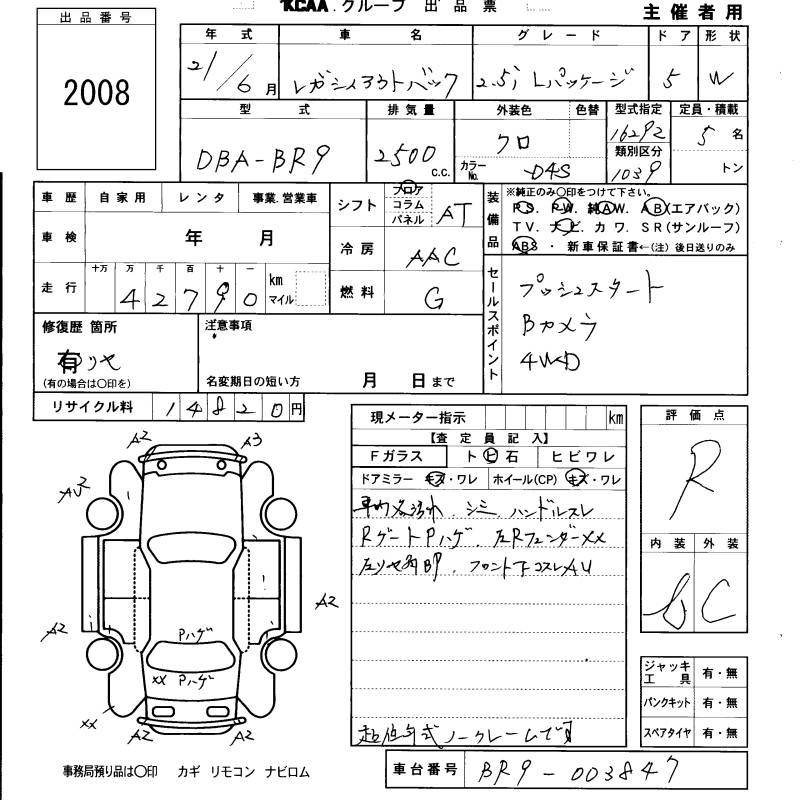 KCAA グループ 出品票
主催者用
出品番号
2008
年式 車名 グレード ドア 形状
21/6月 レガシィアウトバック 2.5i Lパッケージ 5 W
型式 排気量 外装色 色替 型式指定 定員・積載
DBA-BR9 2500 c.c. クロ 16292 5名
カラーNo. D4S 類別区分 1039 トン
車歴 自家用 レンタ 事業.営業車
車検 年 月
走行 十万 万 千 百 十 一 km マイル
42790
シフト フロア コラム パネル AT
冷房 AAC
燃料 G
装備品
※純正のみ〇印をつけて下さい。
PS. PW. 純AW. AB(エアバック)
TV. ナビ. カワ. SR(サンルーフ)
ABS・新車保証書←(注)後日送りのみ
セールスポイント
プッシュスタート
Bカメラ
4WD
修復歴 箇所
有 リヤ
(有の場合は〇印を)
注意事項
名変期日の短い方 月 日まで
リサイクル料 14820円
現メーター指示 km
【査定員記入】
Fガラス トビ石 ヒビワレ
ドアミラー キズ・ワレ ホイール(CP) キズ・ワレ
シミ ハンドルスレ
RゲートPハゲ. 左RフェンダーXX
フロント下コスレAU
ノークレームです
評価点
R
内装 外装
C
ジャッキ工具 有・無
パンクキット 有・無
スペアタイヤ 有・無
A2 A3
AU2
A2
A2
Pハゲ
XX Pハゲ
XX
A2 A2
事務局預り品は〇印 カギ リモコン ナビロム
車台番号 BR9-003847